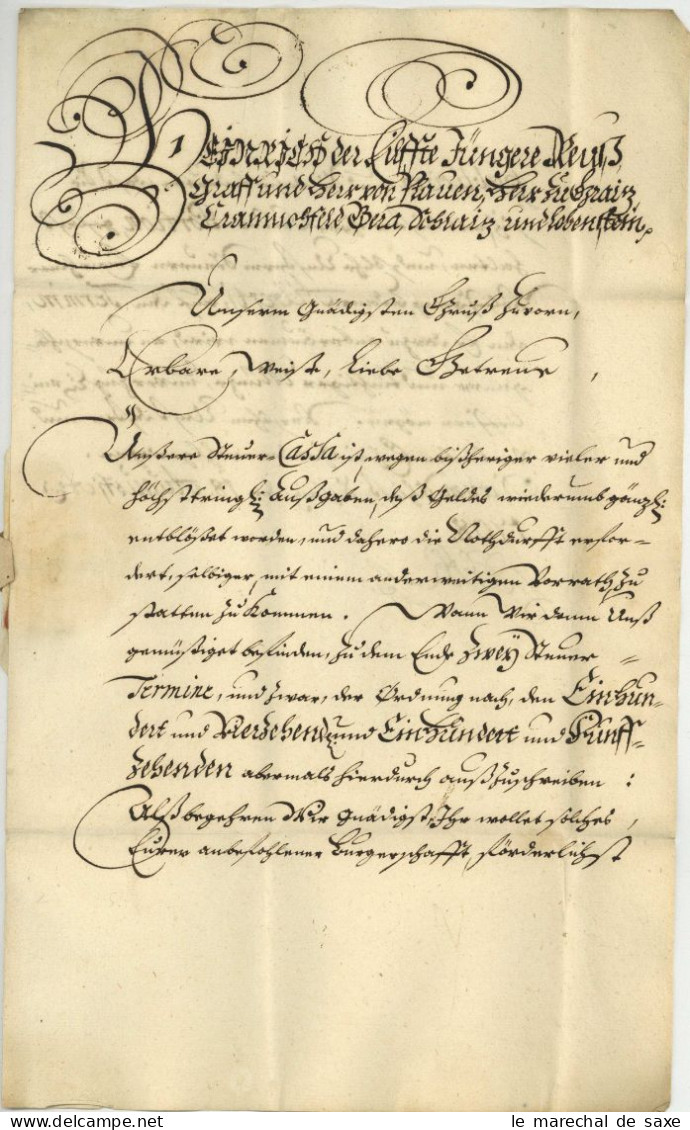 HEINRICH der Eilffte Jüngere Reuß
Graff und Herr von Plauen, Herr zu Graitz
Crannichfeld Gera, Schlaitz und Lobenstein,
Unserm Gnädigsten Gruß zuvorn,
Erbare, Weise, Liebe Getreue,
Unßere Steuer-Cassa ist, wegen bißheriger vieler und
höchstdringl: Außgaben, deß Geldes wiederumb gäntzl:
entblößet worden, und dahero die Nothdurfft erfor-
dert, selbiger, mit einem anderweitigen Vorrath, zu
statten zu kommen. Wann Wir dann Unß
gemüßiget befinden, zu dem Ende Zwey Steuer-
Termine, und zwar, der Ordnung nach, den Einhun-
dert und Vierzehend. und Einhundert und Fünff-
zehenden abermals hierdurch außzuschreiben:
Alß begehren Wir gnädigst, Ihr wollet solches,
Eurer anbefohlener Burgerschafft, förderlichst
le marechal de saxe